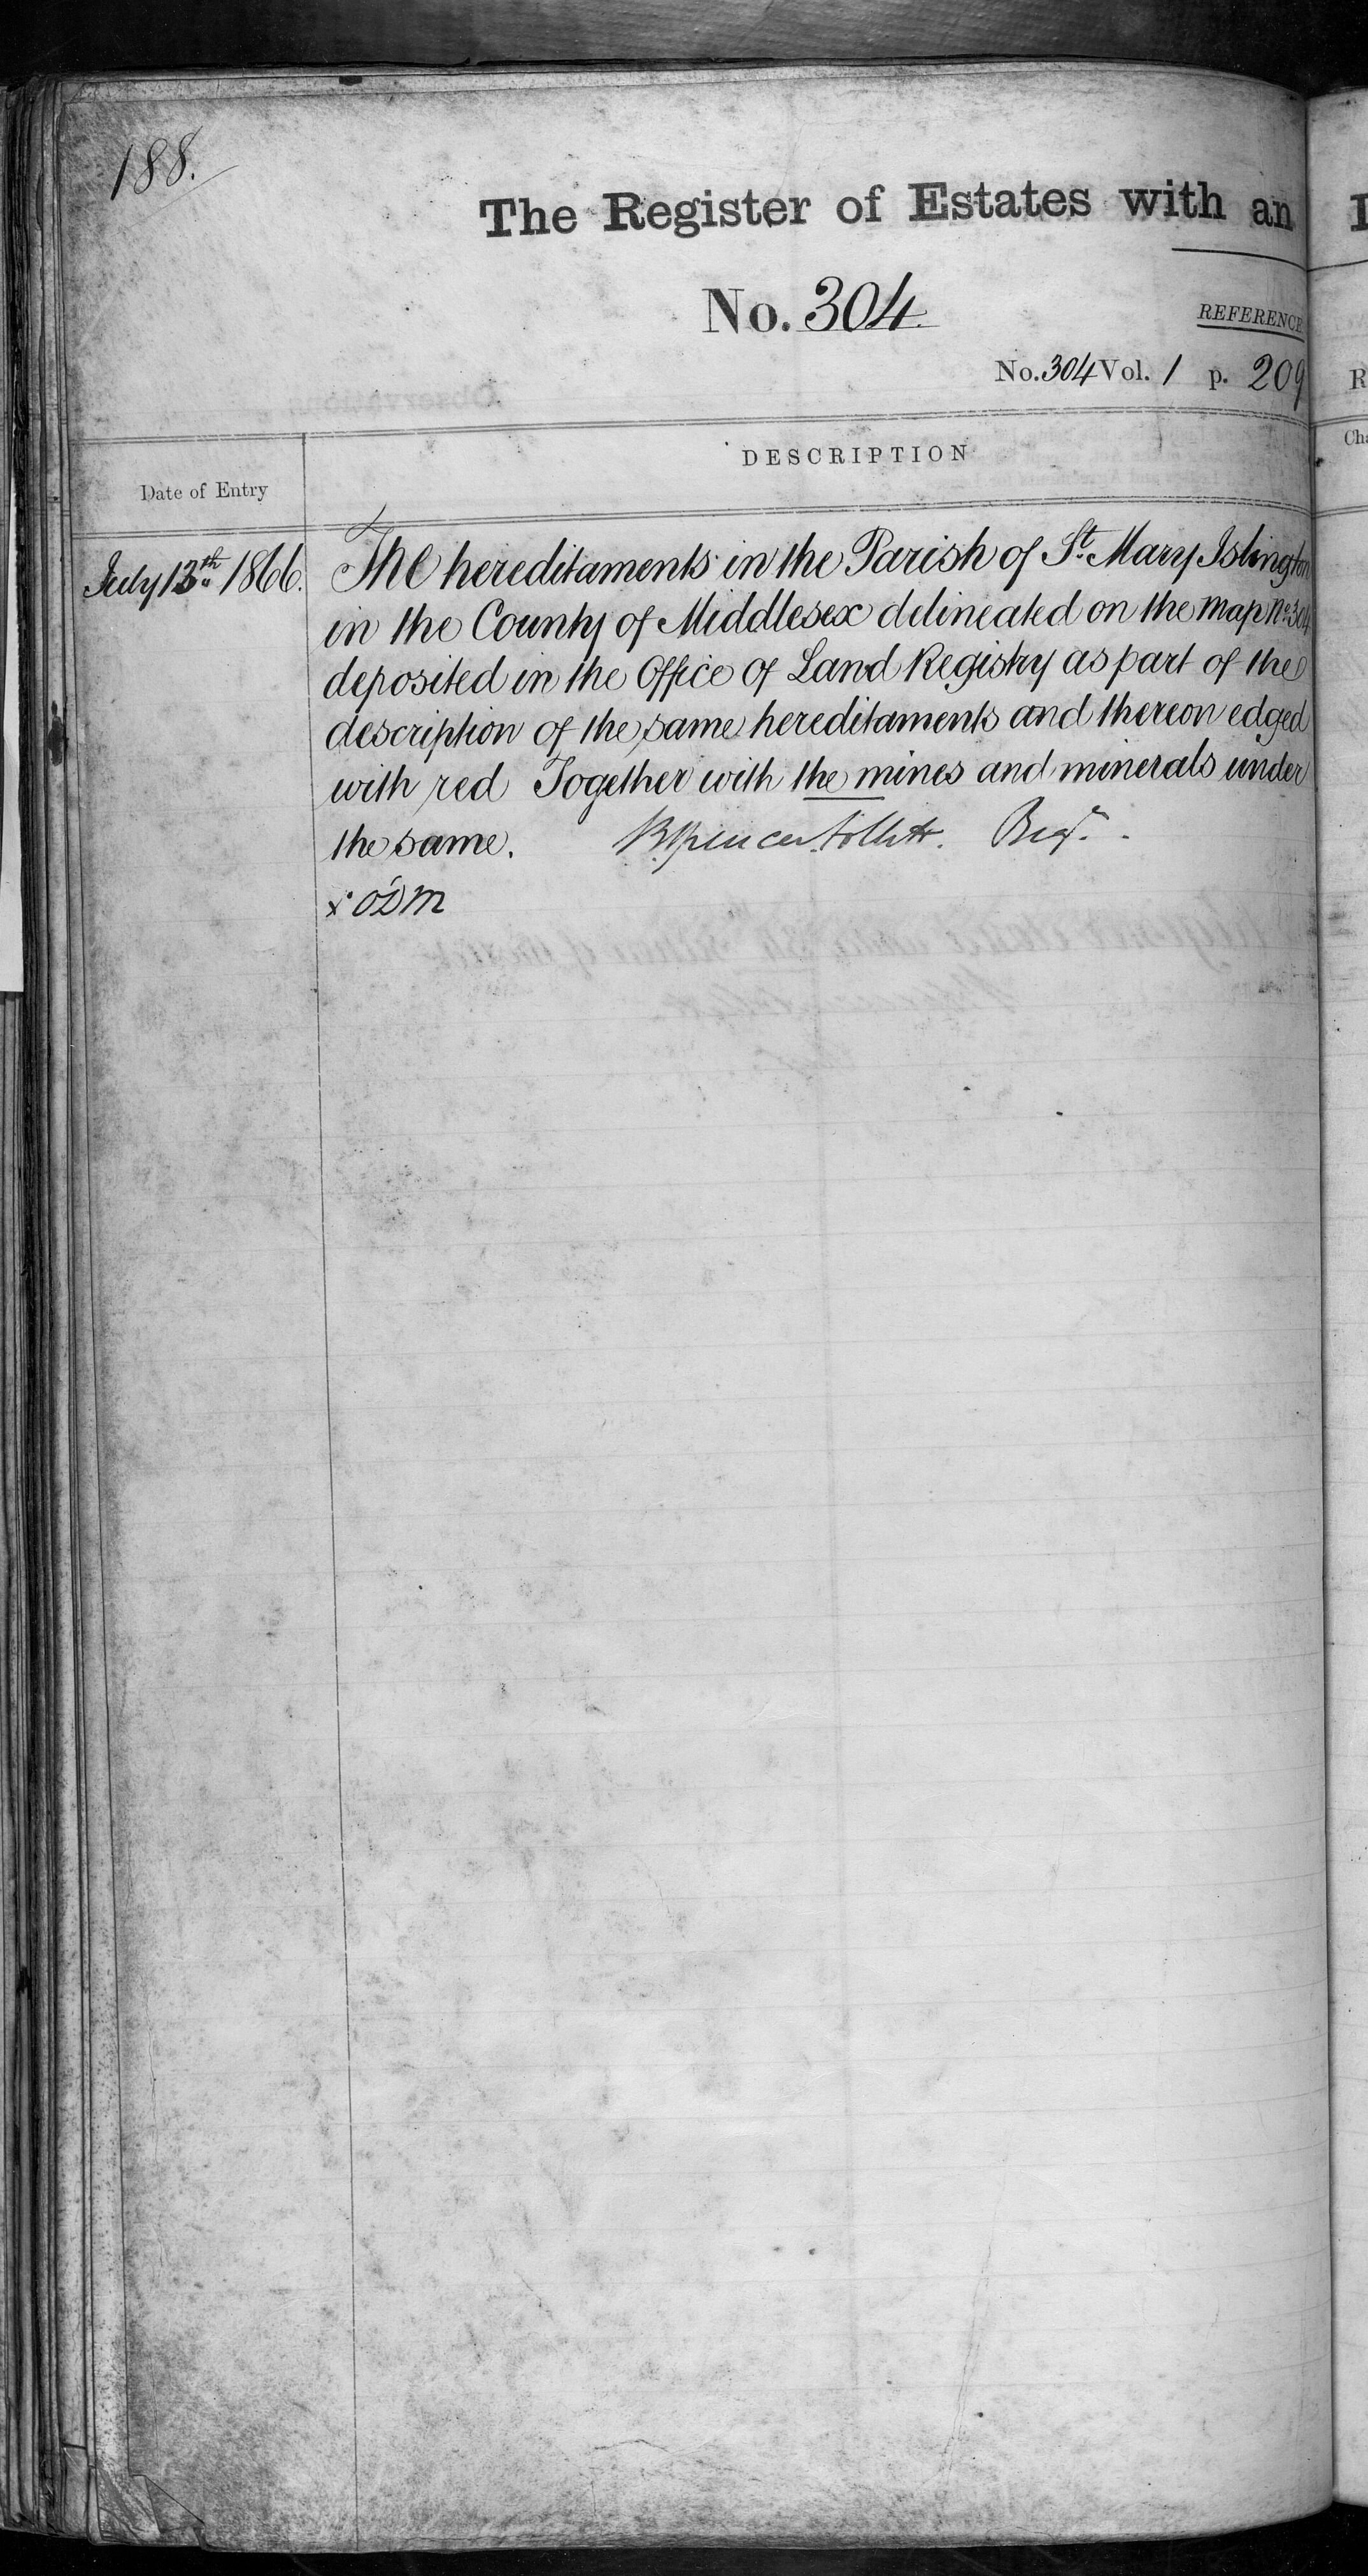 188.
The Register of Estates with an
No. 304.
REFERENCE
No. 304 Vol. 1 p. 209
DESCRIPTION
Date of Entry
July 13th 1866.
The hereditaments in the Parish of St. Mary Islington
in the County of Middlesex delineated on the map No. 304
deposited in the Office of Land Registry as part of the
description of the same hereditaments and thereon edged
with red Together with the mines and minerals under
the same. Spencer Follett. Regr.